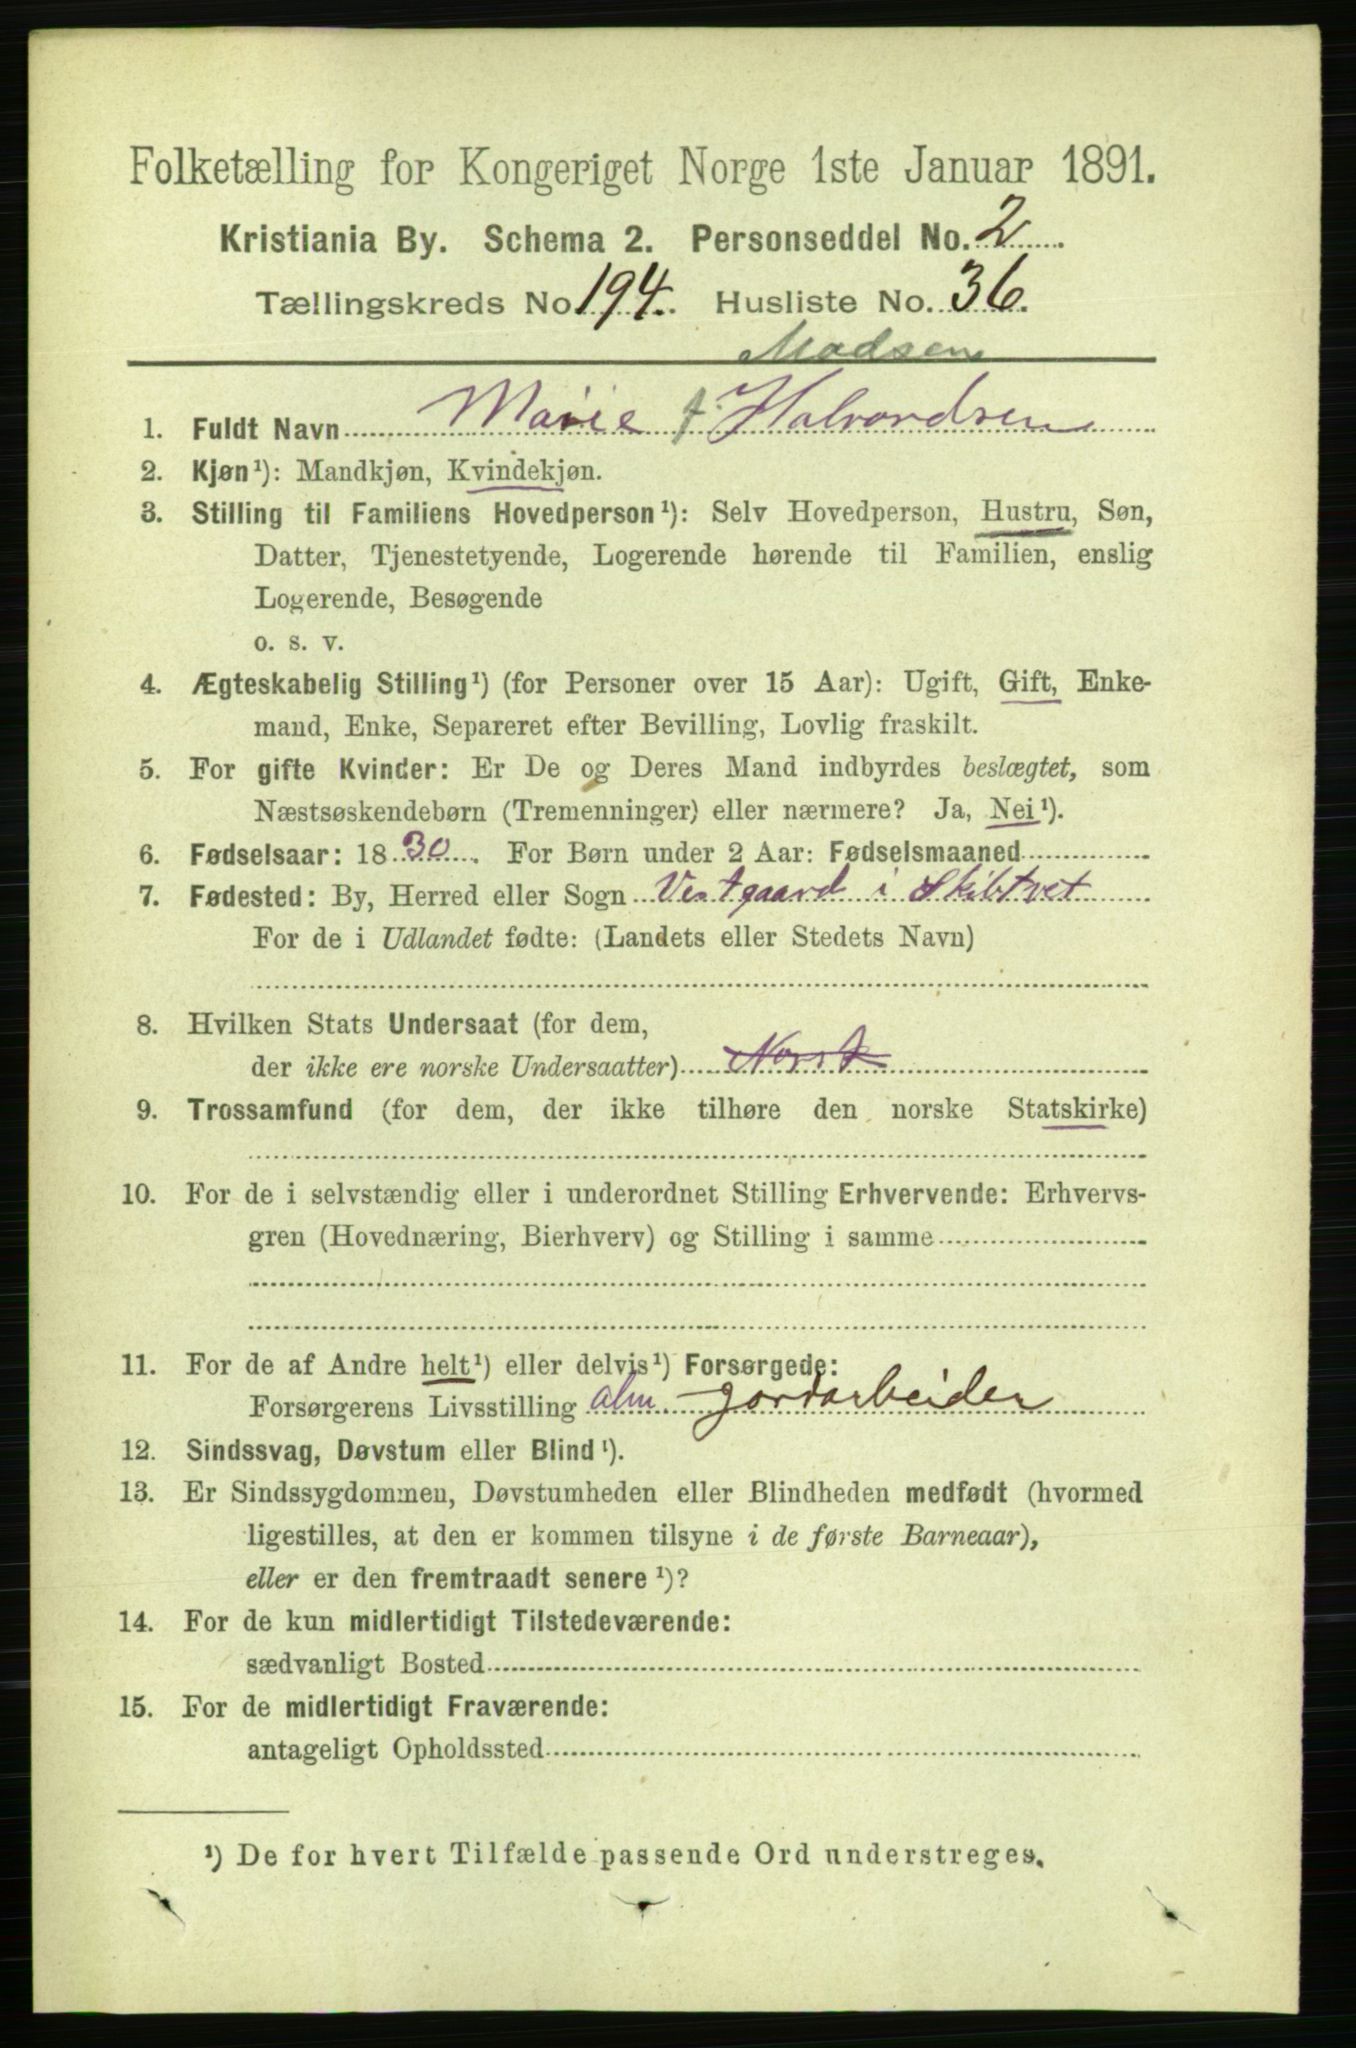 Folketælling for Kongeriget Norge 1ste Januar 1891.
Kristiania By. Schema 2. Personseddel No. 2
Tællingskreds No 194. Husliste No. 36.
Madsen
1. Fuldt Navn Marie f. Halvordsen
2. Kjøn¹): Mandkjøn, Kvindekjøn.
3. Stilling til Familiens Hovedperson¹): Selv Hovedperson, Hustru, Søn,
Datter, Tjenestetyende, Logerende hørende til Familien, enslig
Logerende, Besøgende
o. s. v.
4. Ægteskabelig Stilling¹) (for Personer over 15 Aar): Ugift, Gift, Enke-
mand, Enke, Separeret efter Bevilling, Lovlig fraskilt.
5. For gifte Kvinder: Er De og Deres Mand indbyrdes beslægtet, som
Næstsøskendebørn (Tremenninger) eller nærmere? Ja, Nei¹).
6. Fødselsaar: 1830. For Børn under 2 Aar: Fødselsmaaned
7. Fødested: By, Herred eller Sogn Vestgaard i Skibtvet
For de i Udlandet fødte: (Landets eller Stedets Navn)
8. Hvilken Stats Undersaat (for dem,
der ikke ere norske Undersaatter) Norsk
9. Trossamfund (for dem, der ikke tilhøre den norske Statskirke)
10. For de i selvstændig eller i underordnet Stilling Erhvervende: Erhvervs-
gren (Hovednæring, Bierhverv) og Stilling i samme
11. For de af Andre helt¹) eller delvis¹) Forsørgede:
Forsørgerens Livsstilling alm jordarbeider
12. Sindssvag, Døvstum eller Blind¹).
13. Er Sindssygdommen, Døvstumheden eller Blindheden medfødt (hvormed
ligestilles, at den er kommen tilsyne i de første Barneaar),
eller er den fremtraadt senere¹)?
14. For de kun midlertidigt Tilstedeværende:
sædvanligt Bosted
15. For de midlertidigt Fraværende:
antageligt Opholdssted
¹) De for hvert Tilfælde passende Ord understreges.